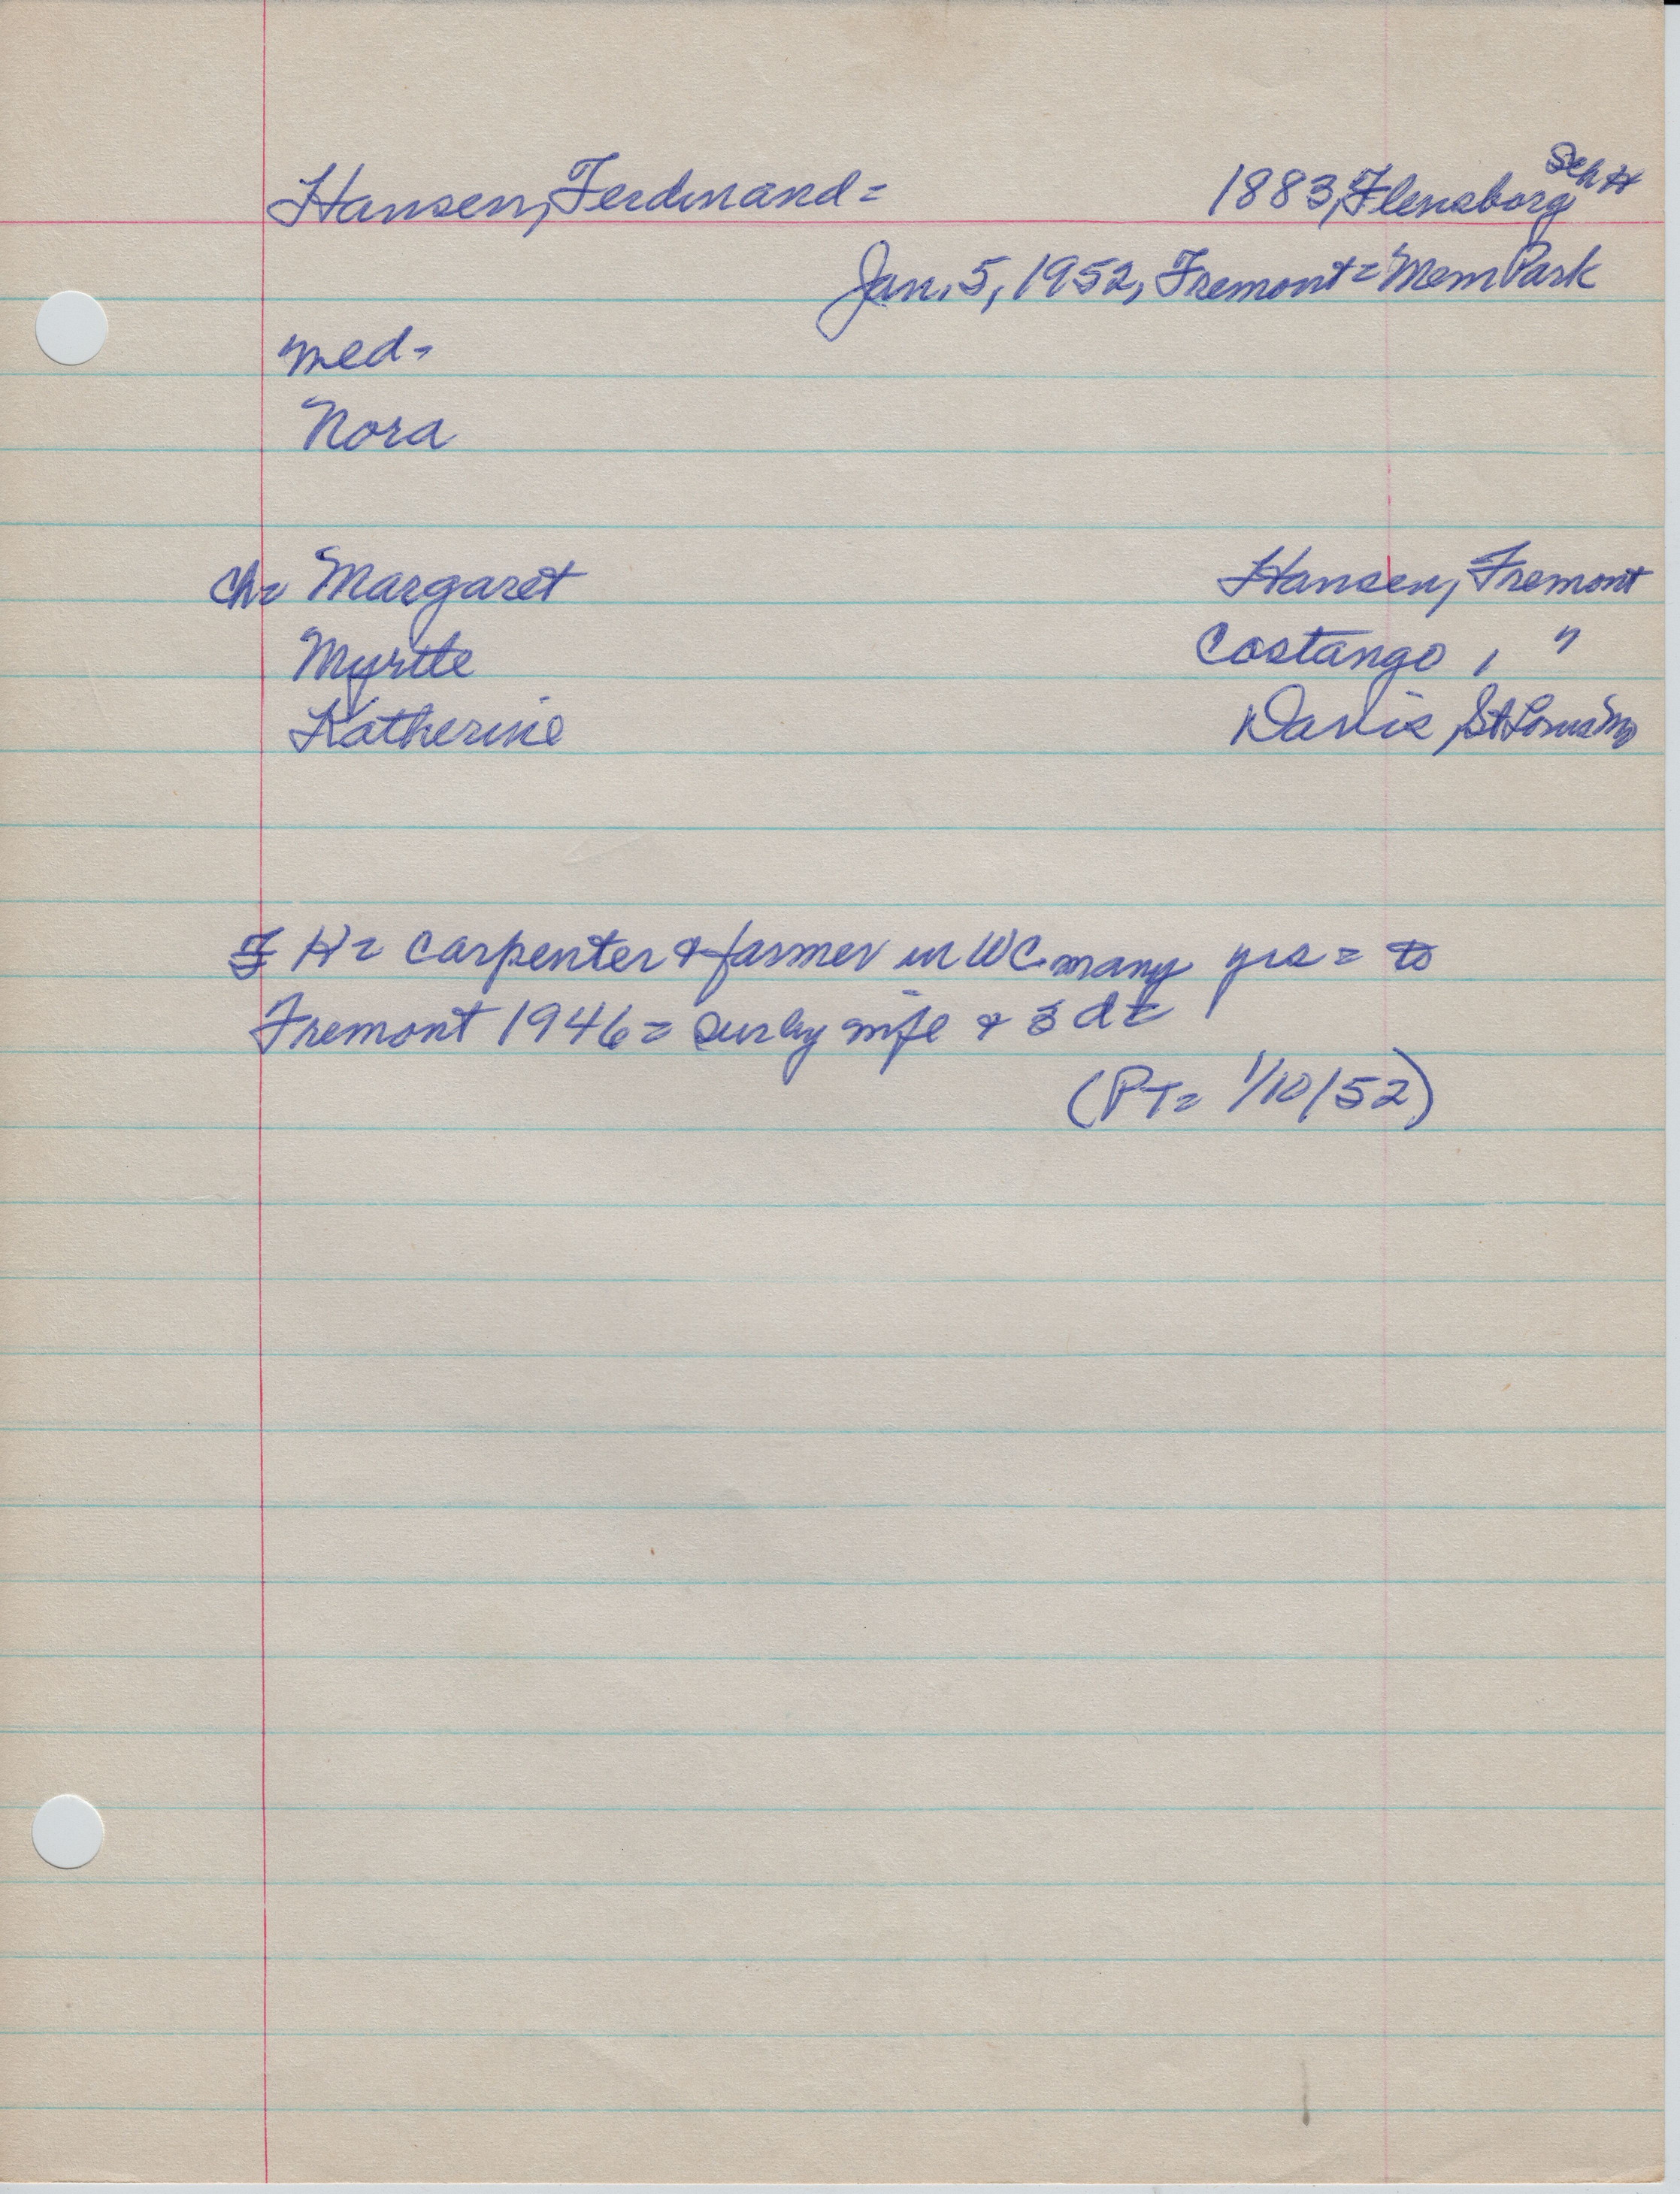 Hansen, Ferdinand = 1883, Flensborg Sch H
Jan. 5, 1952, Fremont = Mem Park
med-
Nora
ch= Margaret Hansen, Fremont
Myrtle Costango , "
Katherine Davis, St Louis Mo
F H = carpenter & farmer in WC many yrs = to
Fremont 1946 = sur by wife & 3 dt
(PT= 1/10/52)